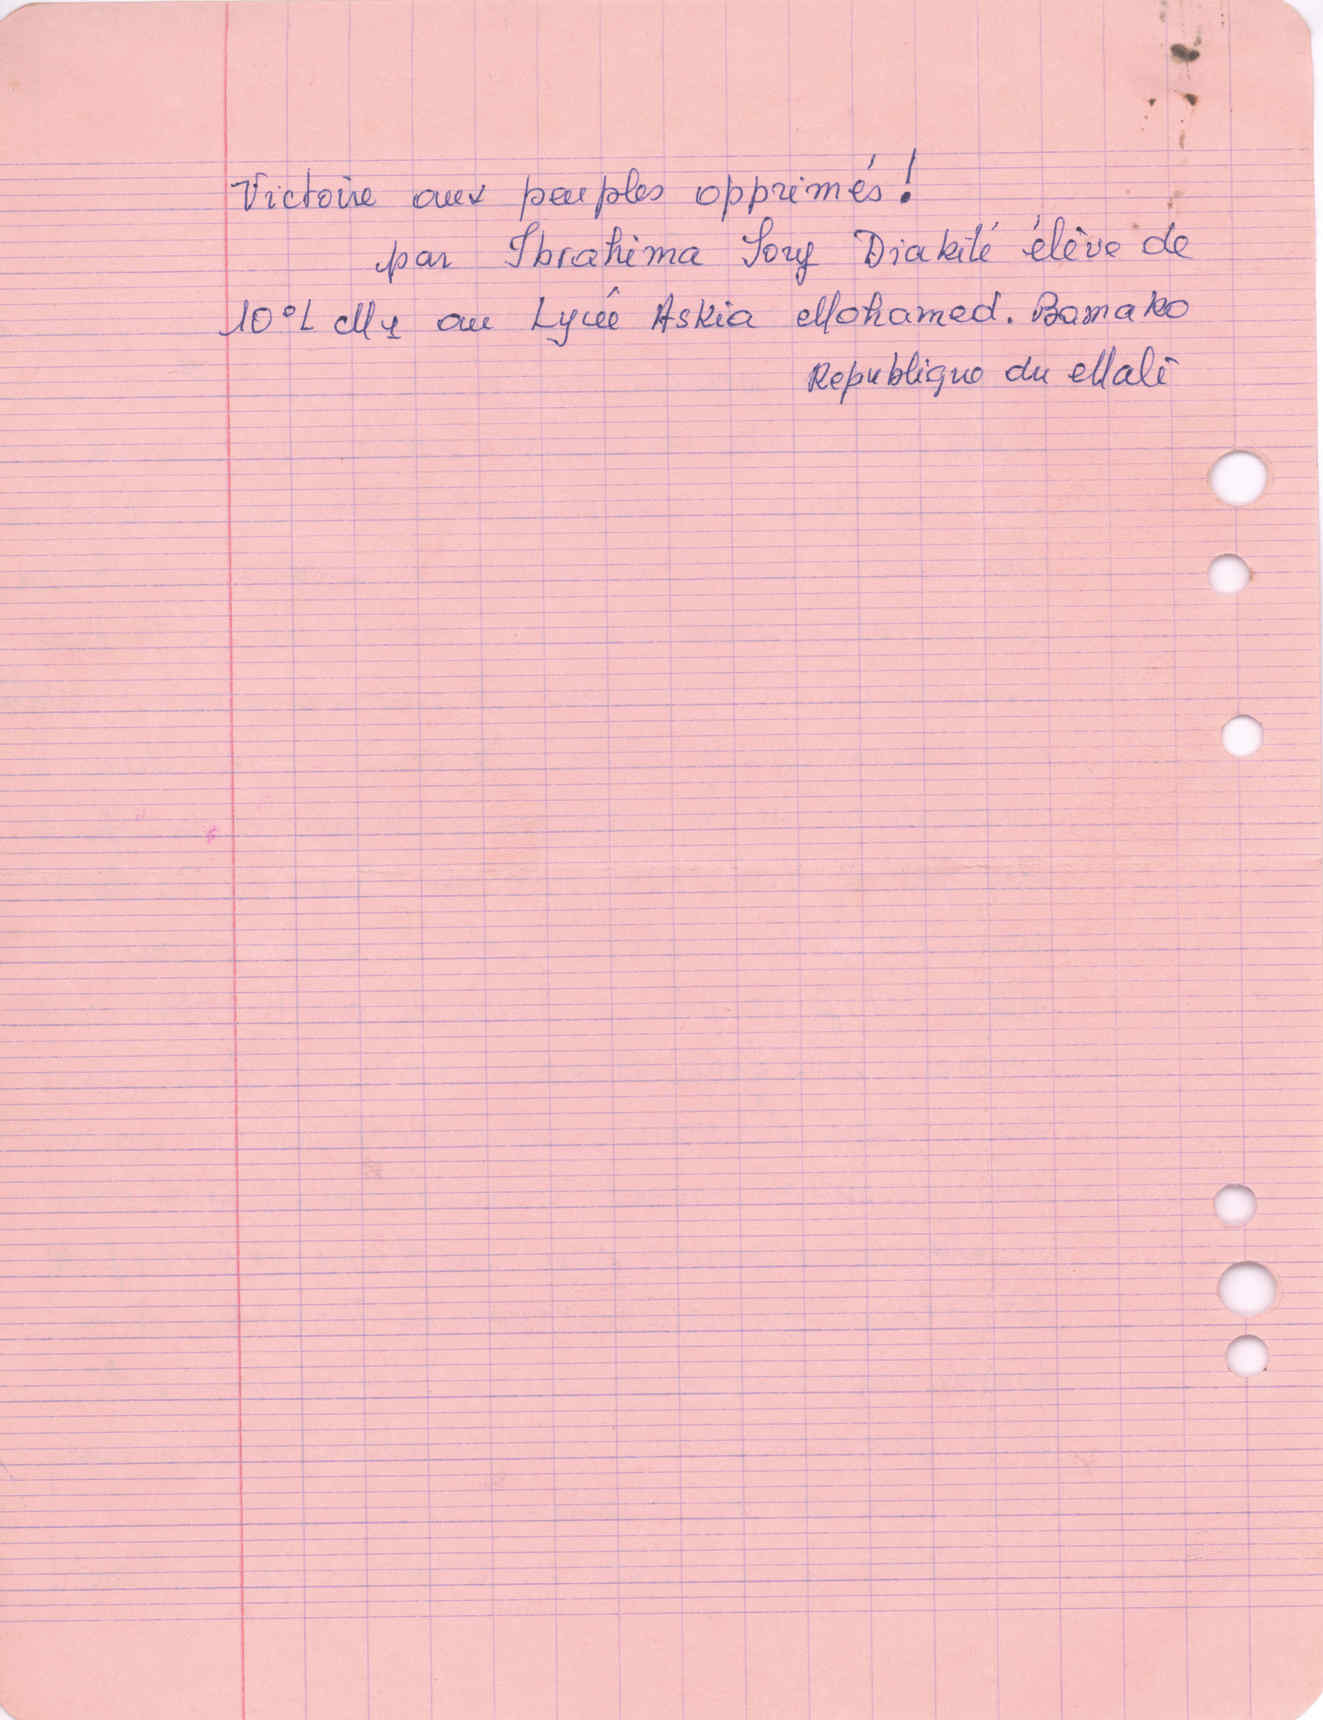 Victoire aux peuples opprimés!
par Ibrahima Sory Diakité élève de
10°L My au Lycée Askia Mohamed. Bamako
Republique du Mali